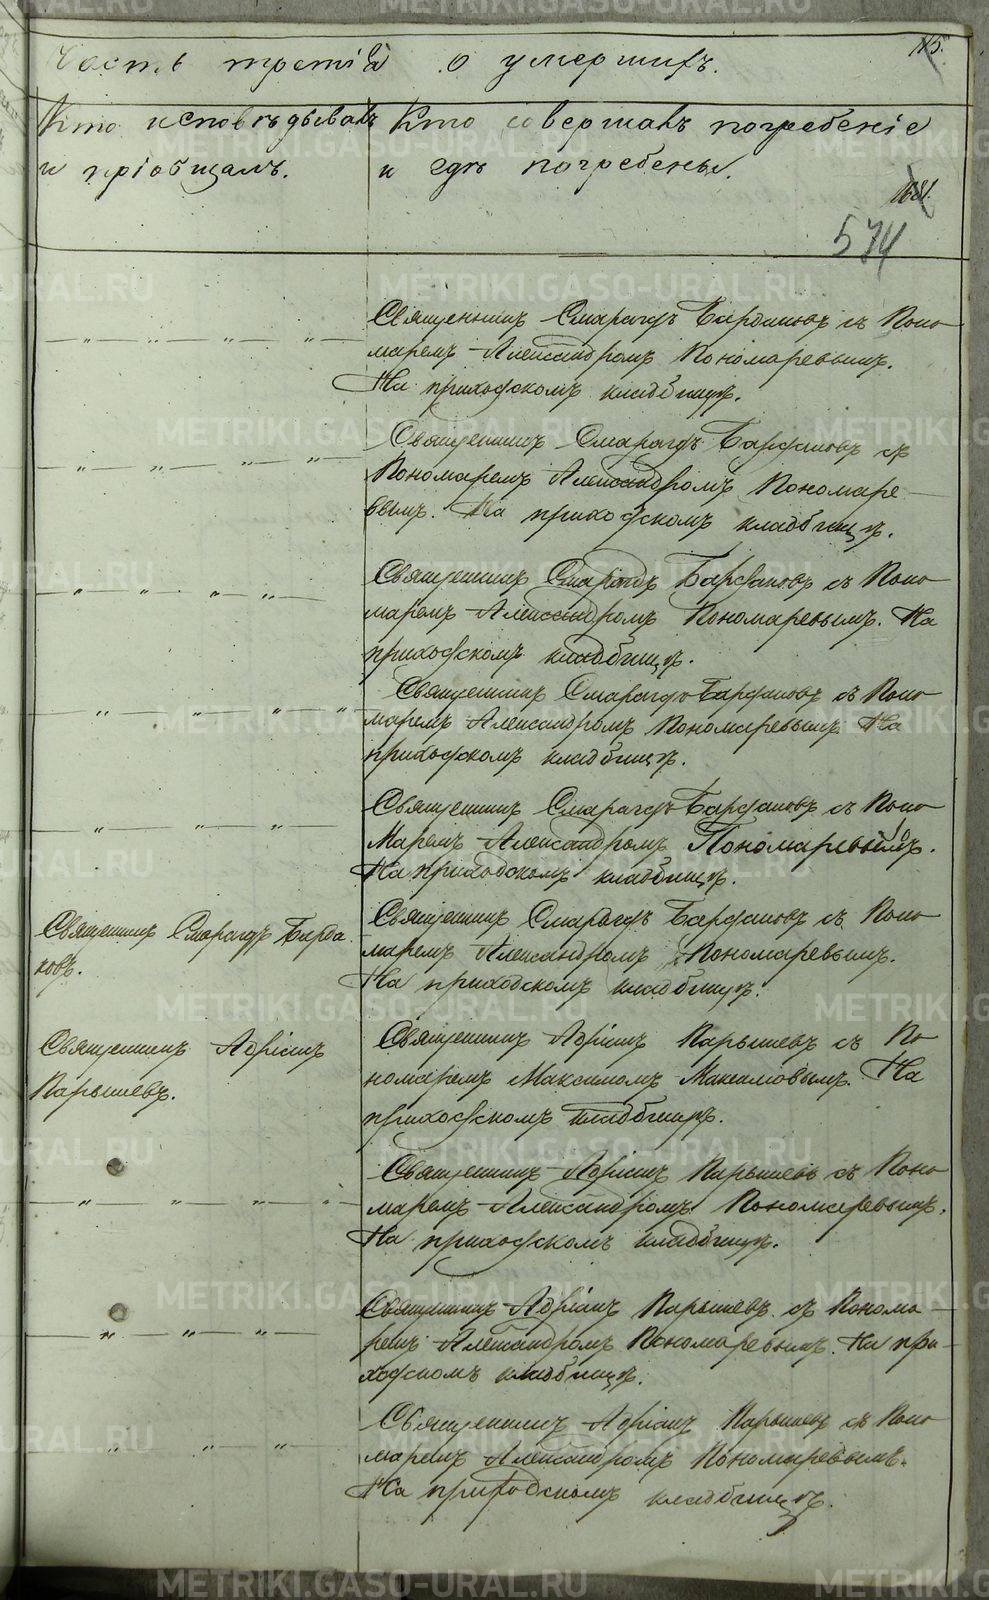 Часть третія о умершихъ.
115.
Кто исповѣдывалъ и пріобщалъ.
Кто совершалъ погребеніе и гдѣ погребены.
574
Священникъ Смарагдъ Бардаковъ съ Поно-
маремъ Александромъ Пономаревымъ.
На приходскомъ кладбищѣ.
Священникъ Смарагдъ Бардаковъ съ
Пономаремъ Александромъ Пономаре-
вымъ. На приходскомъ кладбищѣ.
Священникъ Смарагдъ Бардаковъ съ Поно-
маремъ Александромъ Пономаревымъ. На
приходскомъ кладбищѣ.
Священникъ Смарагдъ Бардаковъ съ Поно
маремъ Александромъ Пономаревымъ. На
приходскомъ кладбищѣ.
Священникъ Смарагдъ Бардаковъ съ Поно
маремъ Александромъ Пономаревымъ.
На приходскомъ кладбищѣ.
Священникъ Смарагдъ Барда
ковъ.
Священникъ Смарагдъ Бардаковъ съ Поно
маремъ Александромъ Пономаревымъ.
На приходскомъ кладбищѣ.
Священникъ Адріанъ
Парышевъ.
Священникъ Адріанъ Парышевъ съ По
номаремъ Максимомъ Максимовымъ. На
приходскомъ кладбищѣ.
Священникъ Адріанъ Парышевъ съ Поно
маремъ Александромъ Пономаревымъ.
На приходскомъ кладбищѣ.
Священникъ Адріанъ Парышевъ съ Понома-
ремъ Александромъ Пономаревымъ. На при-
ходскомъ кладбищѣ.
Священникъ Адріанъ Парышевъ съ Поно
маремъ Александромъ Пономаревымъ.
На приходскомъ кладбищѣ.
METRIKI.GASO-URAL.RU